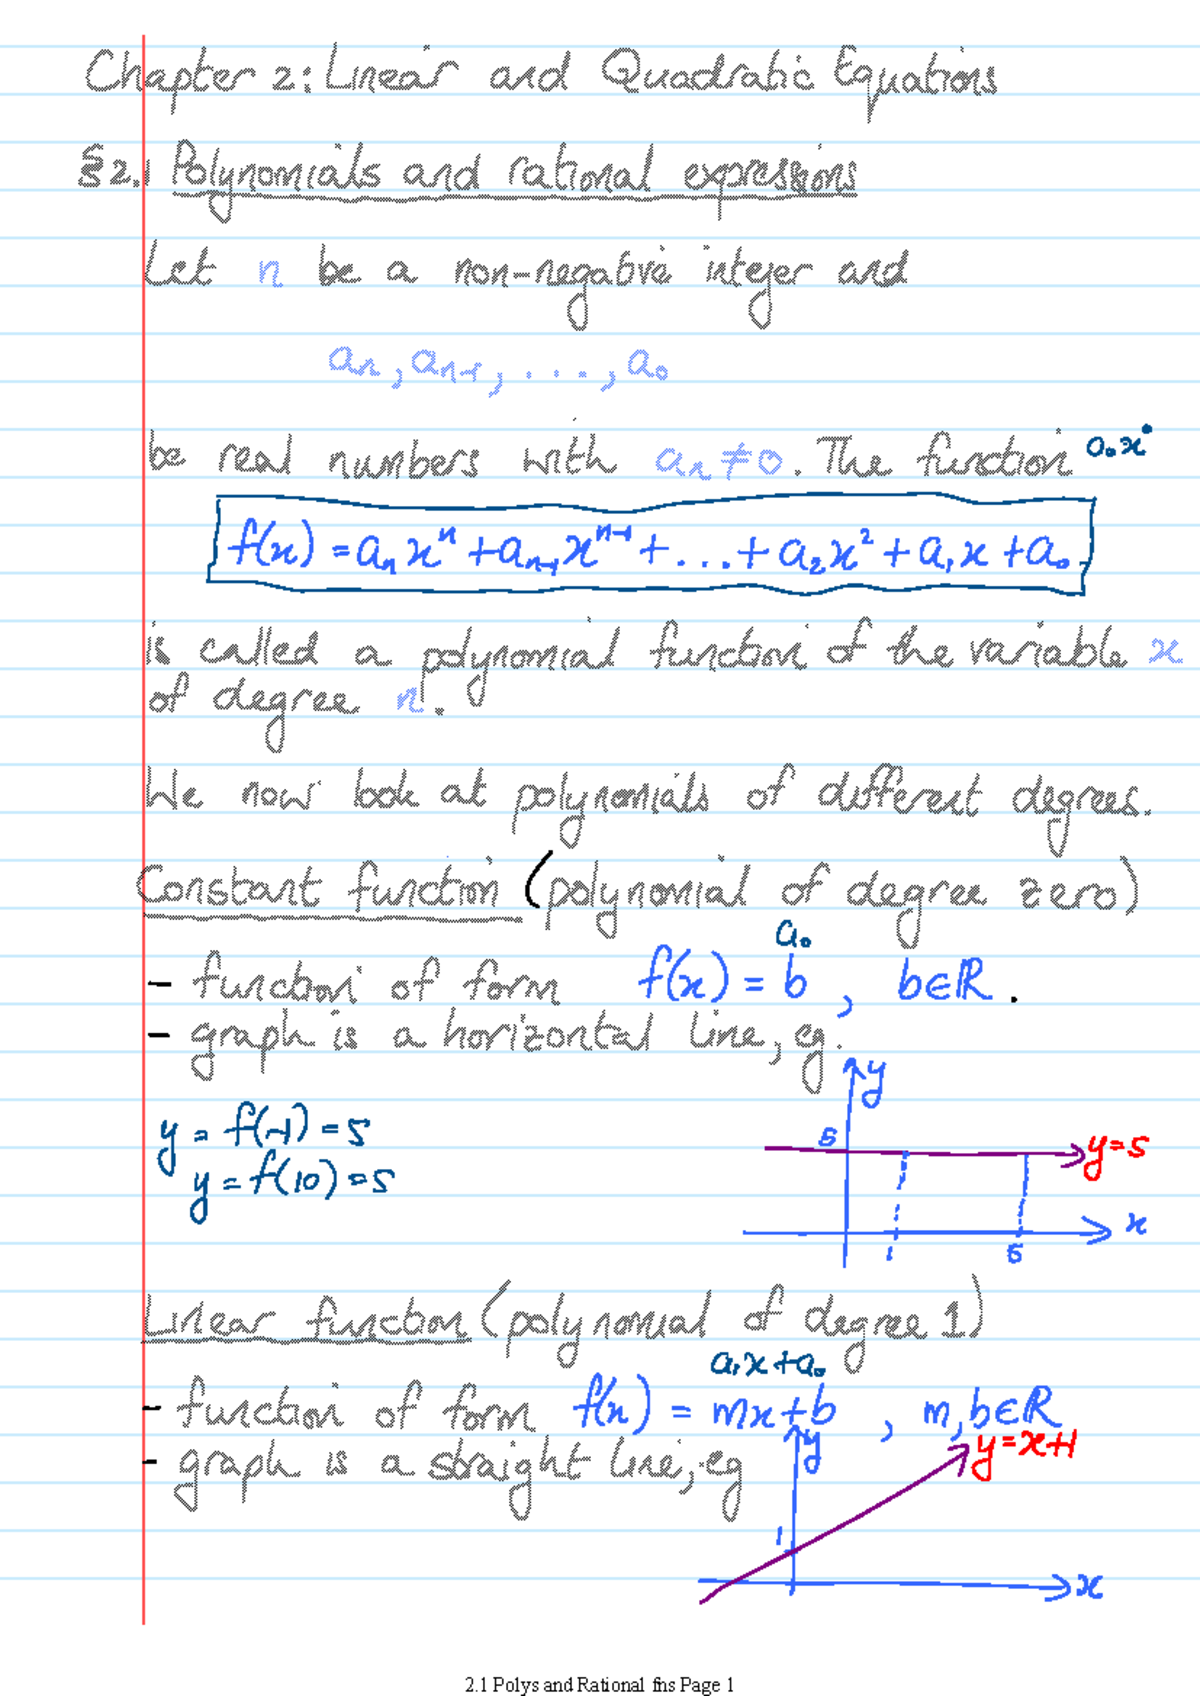 Chapter 2: Linear and Quadratic Equations
§2.1 Polynomials and rational expressions
Let n be a non-negative integer and
aₙ, aₙ₋₁, ..., a₀
be real numbers with aₙ ≠ 0. The function a₀x⁰
f(x) = aₙxⁿ + aₙ₋₁xⁿ⁻¹ + ... + a₂x² + a₁x + a₀
is called a polynomial function of the variable x
of degree n.
We now look at polynomials of different degrees.
Constant function (polynomial of degree zero)
a₀
- function of form f(x) = b , b∈ℝ.
- graph is a horizontal line, eg.
y
y = f(-1) = 5
5 y=5
y = f(10) = 5
x
1 5
Linear function (polynomial of degree 1)
a₁x + a₀
- function of form f(x) = mx+b , m,b∈ℝ
y y=x+1
- graph is a straight line, eg
1
x
2.1 Polys and Rational fns Page 1